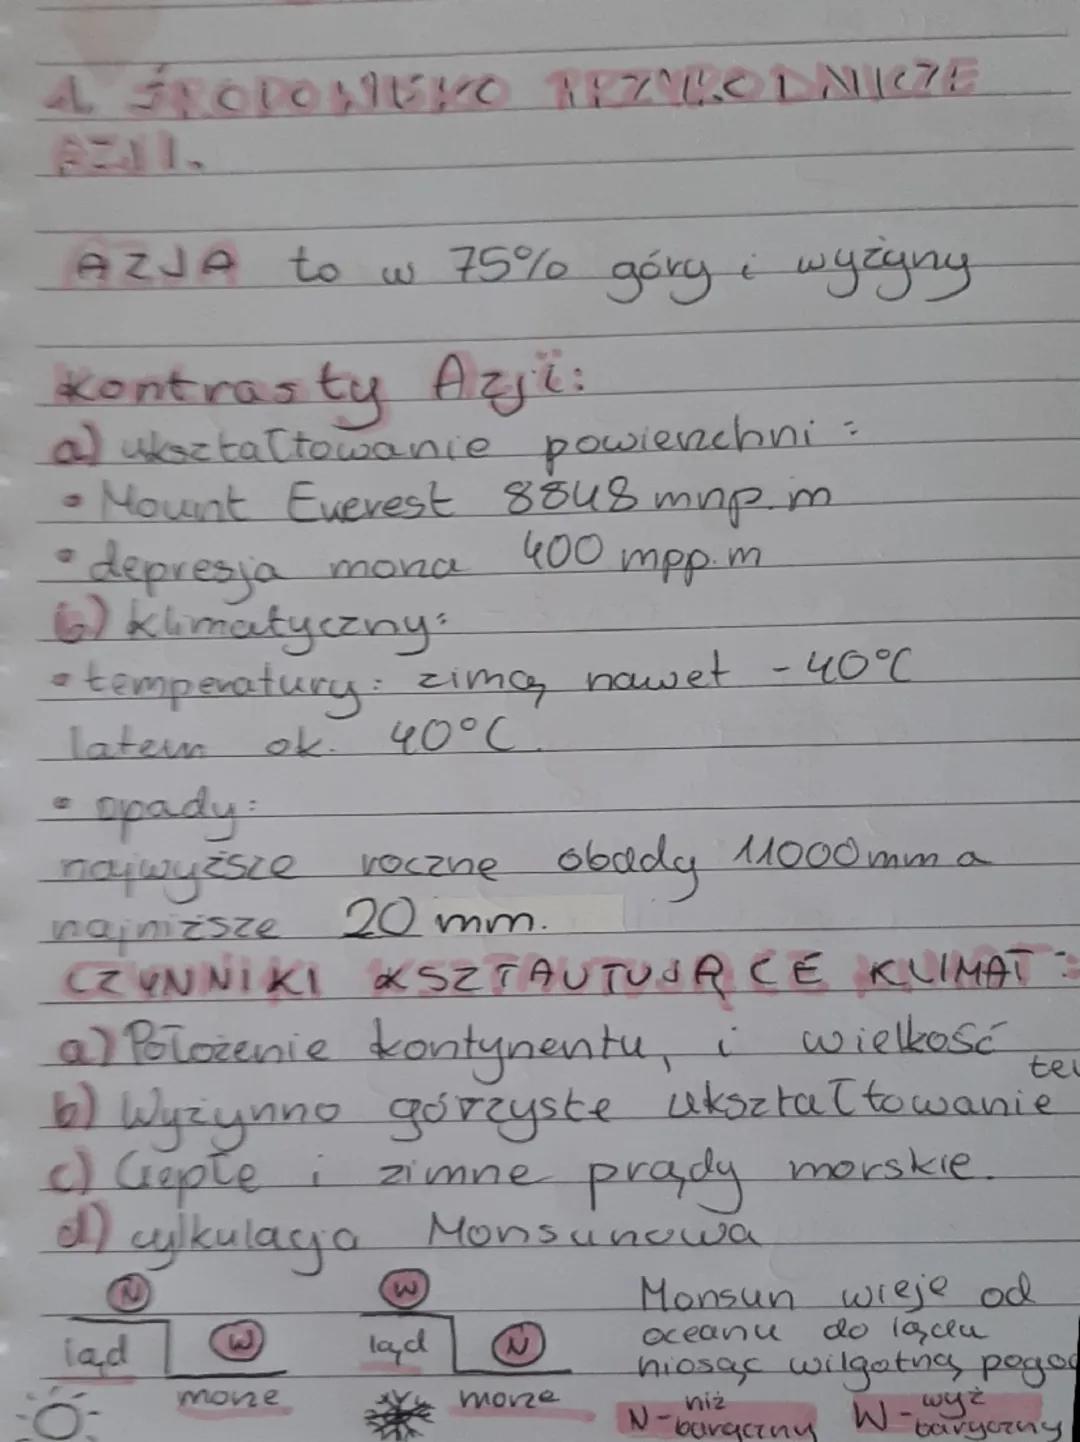 1. ŚRODOWISKO PRZYRODNICZE
AZJI.
AZJA to w 75% góry i wyżyny
Kontrasty Azji:
a) ukształtowanie powierzchni:
• Mount Everest 8848 mnp.m
• depresja morza 400 mpp.m
b) klimatyczny:
• temperatury: zimą nawet -40°C
latem ok. 40°C.
• opady:
najwyższe roczne obady 11000mm a
najniższe 20 mm.
CZYNNIKI KSZTAŁTUJĄCE KLIMAT:
a) Położenie kontynentu, i wielkość
b) Wyżynno górzyste ukształtowanie
c) Ciepłe i zimne prądy morskie.
d) cylkulacja Monsunowa
N W Monsun wieje od
ląd W ląd N oceanu do lądu
niosąc wilgotną
morze morze niż wyż
N-baryczny W-baryczny